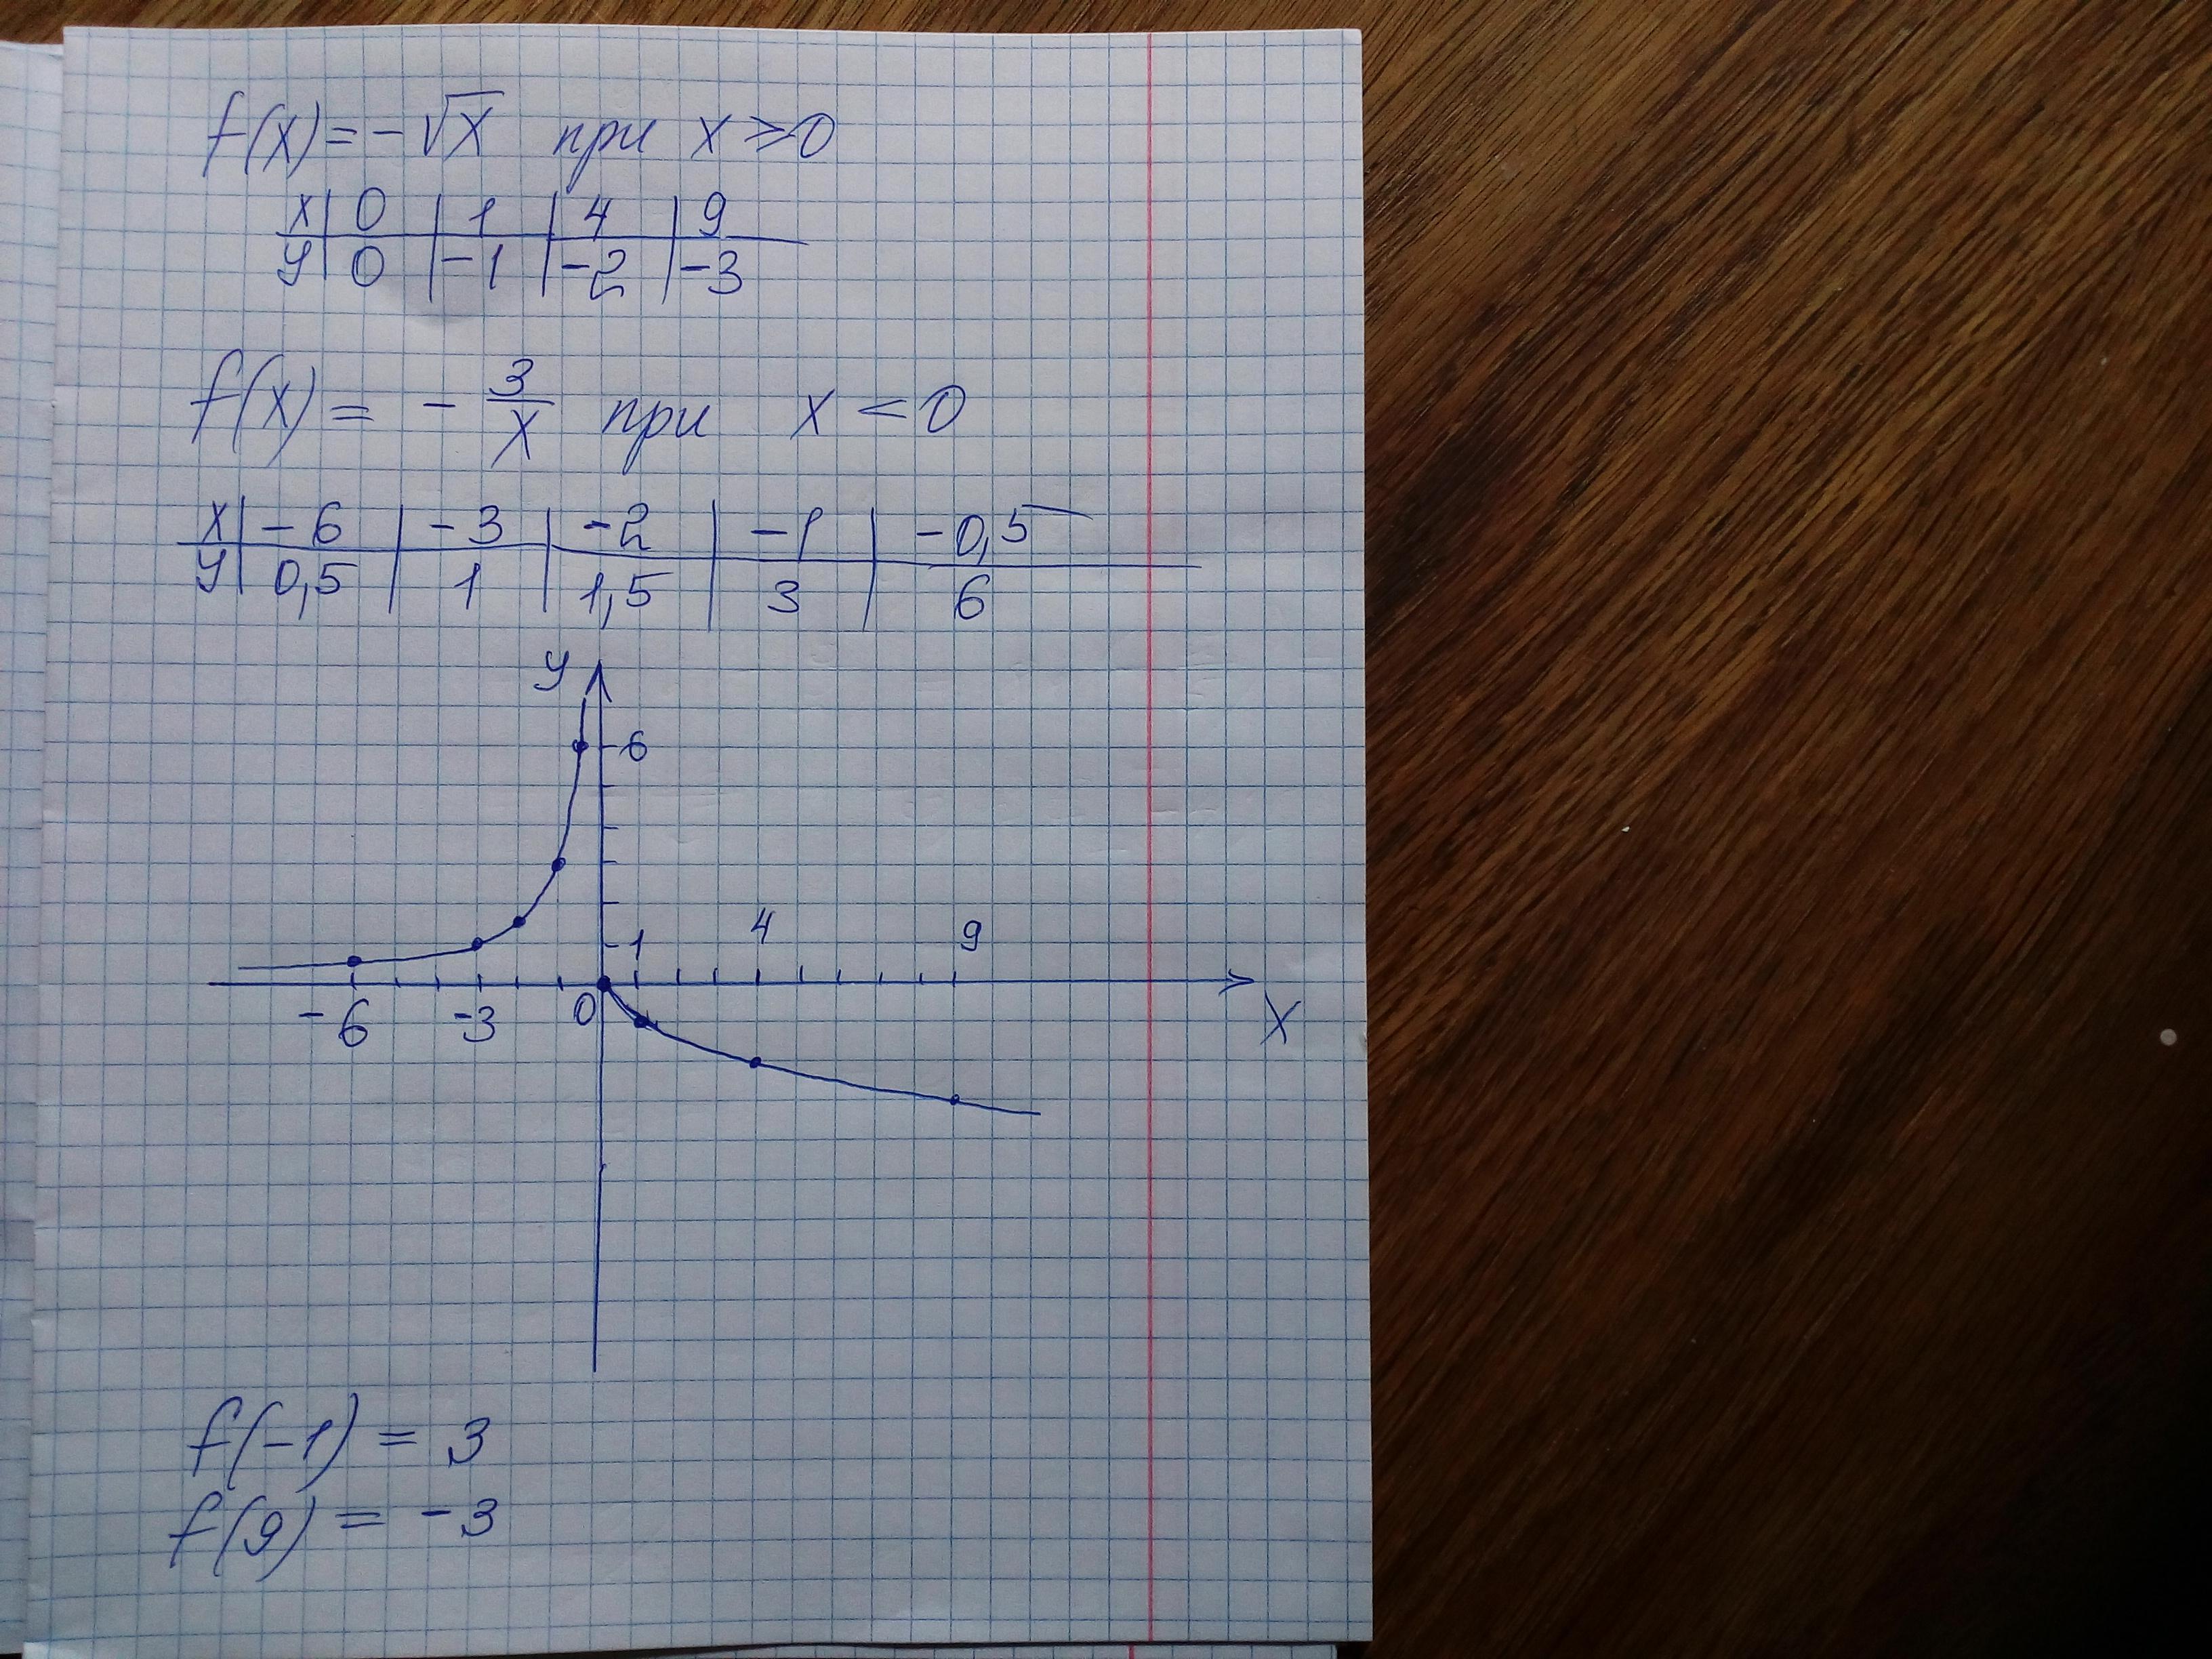 f(x) = -√x при x ≥ 0
x | 0 | 1 | 4 | 9
y | 0 | -1 | -2 | -3
f(x) = - 3/x при x < 0
x | -6 | -3 | -2 | -1 | -0,5
y | 0,5 | 1 | 1,5 | 3 | 6
y
6
1 4 9
-6 -3 0 x
f(-1) = 3
f(9) = -3